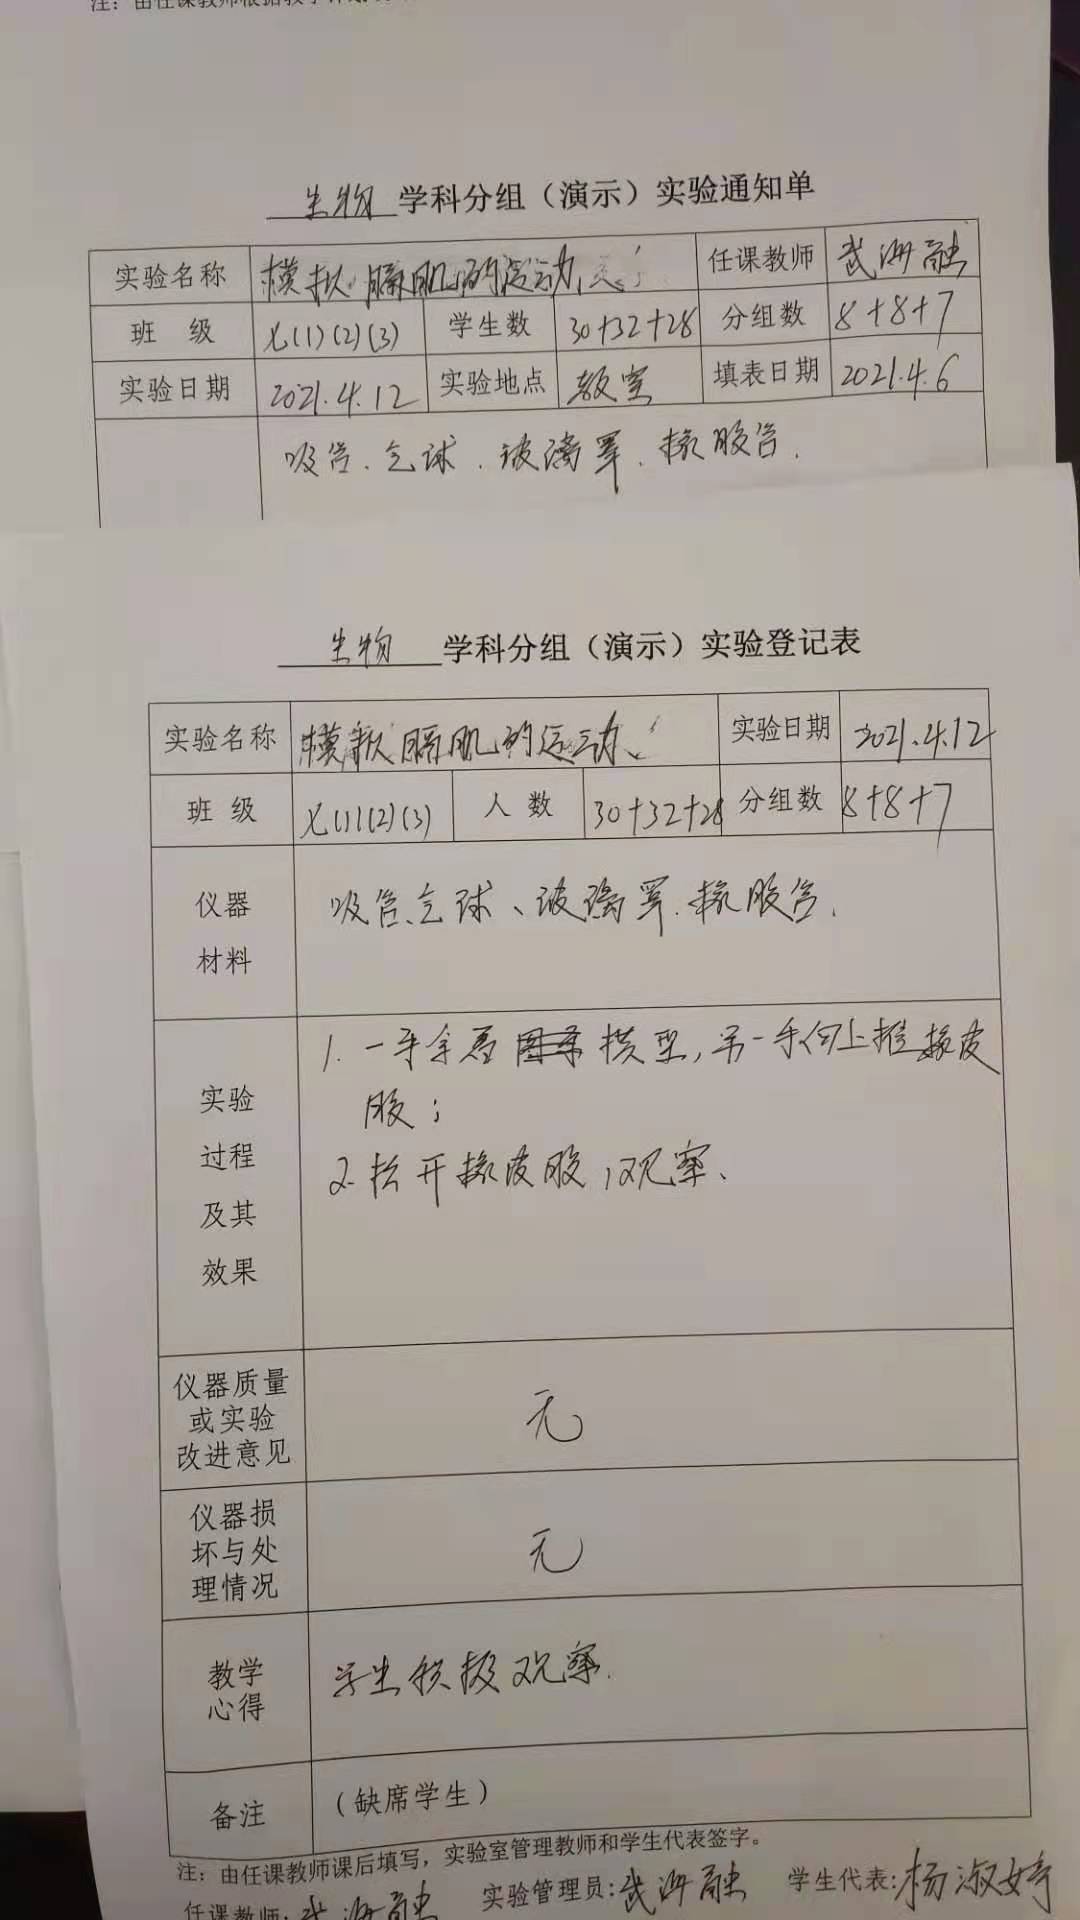 注：由任课教师根据教学计划
生物 学科分组（演示）实验通知单
实验名称 模拟膈肌的运动 任课教师 武海融
班 级 七(1)(2)(3) 学生数 30+32+28 分组数 8+8+7
实验日期 2021.4.12 实验地点 教室 填表日期 2021.4.6
吸管、气球、玻璃罩、橡胶管.
生物 学科分组（演示）实验登记表
实验名称 模拟膈肌的运动 实验日期 2021.4.12
班 级 七(1)(2)(3) 人 数 30+32+28 分组数 8+8+7
仪器
材料
吸管、气球、玻璃罩、橡胶管.
实验
过程
及其
效果
1. 一手拿着模型，另一手向上推橡皮
膜；
2. 松开橡皮膜，观察、
仪器质量
或实验
改进意见
无
仪器损
坏与处
理情况
无
教学
心得
学生积极观察.
备注
（缺席学生）
注：由任课教师课后填写，实验室管理教师和学生代表签字。
任课教师: 武海融 实验管理员: 武海融 学生代表: 杨淑婷